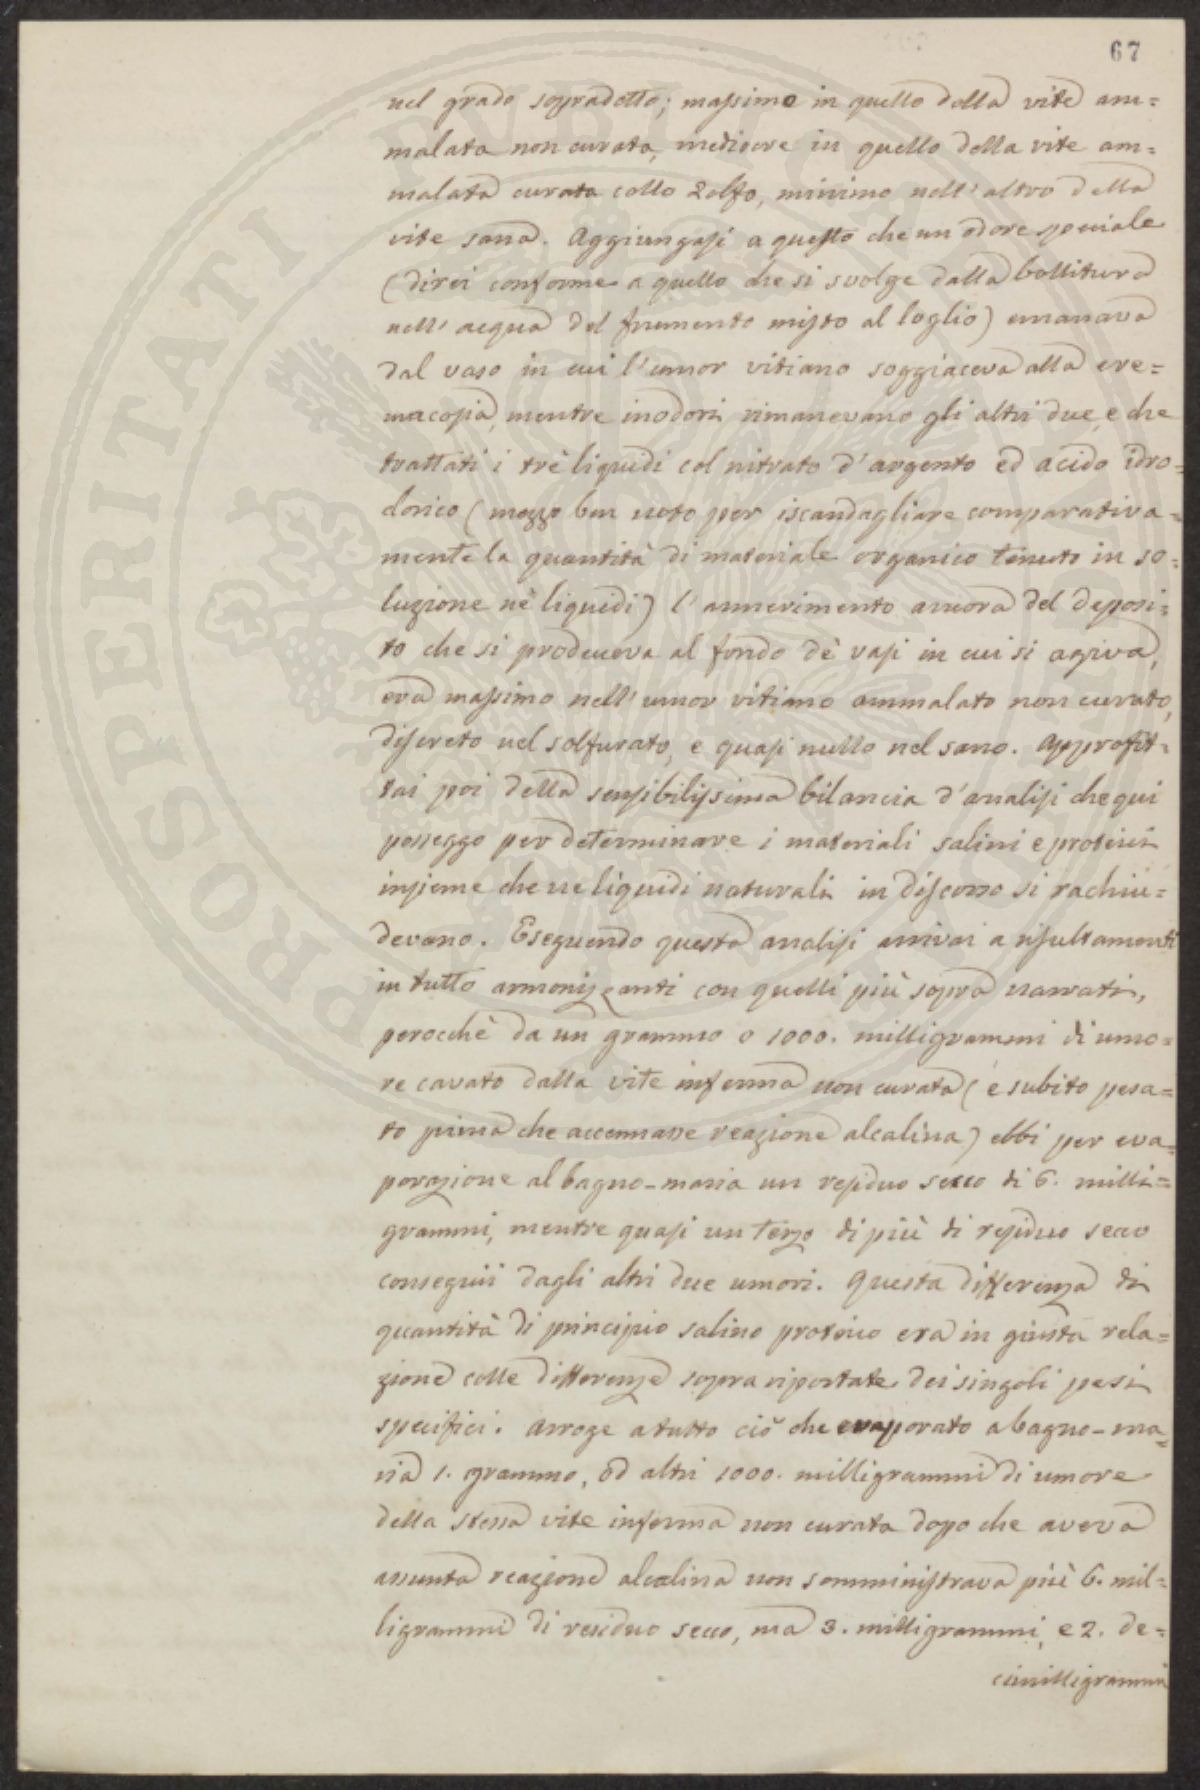 67
nel grado sopradetto; massimo in quello della vite am=
malata non curata, mediocre in quello della vite am=
malata curata collo Zolfo, minimo nell'altro della
vite sana. Aggiungasi a questo che un odore speciale
(direi conforme a quello che si svolge dalla bollitura
nell'acqua del frumento misto al loglio) emanava
dal vaso in cui l'umor vitiano soggiaceva alla ere=
macosia, mentre inodori rimanevano gli altri due, e che
trattati i trè liquidi col nitrato d'argento ed acido idro=
clorico (mezzo ben noto per iscandagliare comparativa=
mente la quantità di materiale organico tenuto in so=
luzione nè liquidi) l'annerimento ancora del deposi=
to che si produceva al fondo dè vasi in cui si agiva,
era massimo nell'umor vitiano ammalato non curato,
discreto nel solfurato, e quasi nullo nel sano. Approfit=
tai poi della sensibilissima bilancia d'analisi che qui
posseggo per determinare i materiali salini e proteici
insieme che ne liquidi naturali in discorso si rachiu=
devano. Eseguendo questa analisi arrivai a risultamenti
in tutto armonizzanti con quelli più sopra narrati,
perocchè da un grammo o 1000. milligrammi di umo=
re cavato dalla vite inferma non curata (e subito pesa=
to prima che accennasse reazione alcalina) ebbi per eva=
porazione al bagno-maria un residuo secco di 6. milli=
grammi, mentre quasi un terzo di più di residuo secco
conseguii dagli altri due umori. Questa differenza di
quantità di principio salino proteico era in giusta rela=
zione colle differenze sopra riportate dei singoli pesi
specifici. Arroge a tutto ciò che evaporato a bagno-ma=
ria 1. grammo, od altri 1000. milligrammi di umore
della stessa vite inferma non curata dopo che aveva
assunta reazione alcalina non somministrava più 6. mil=
ligrammi di residuo secco, ma 3. milligrammi, e 2. de=
cimilligrammi
PROSPERITATI PUBLICAE